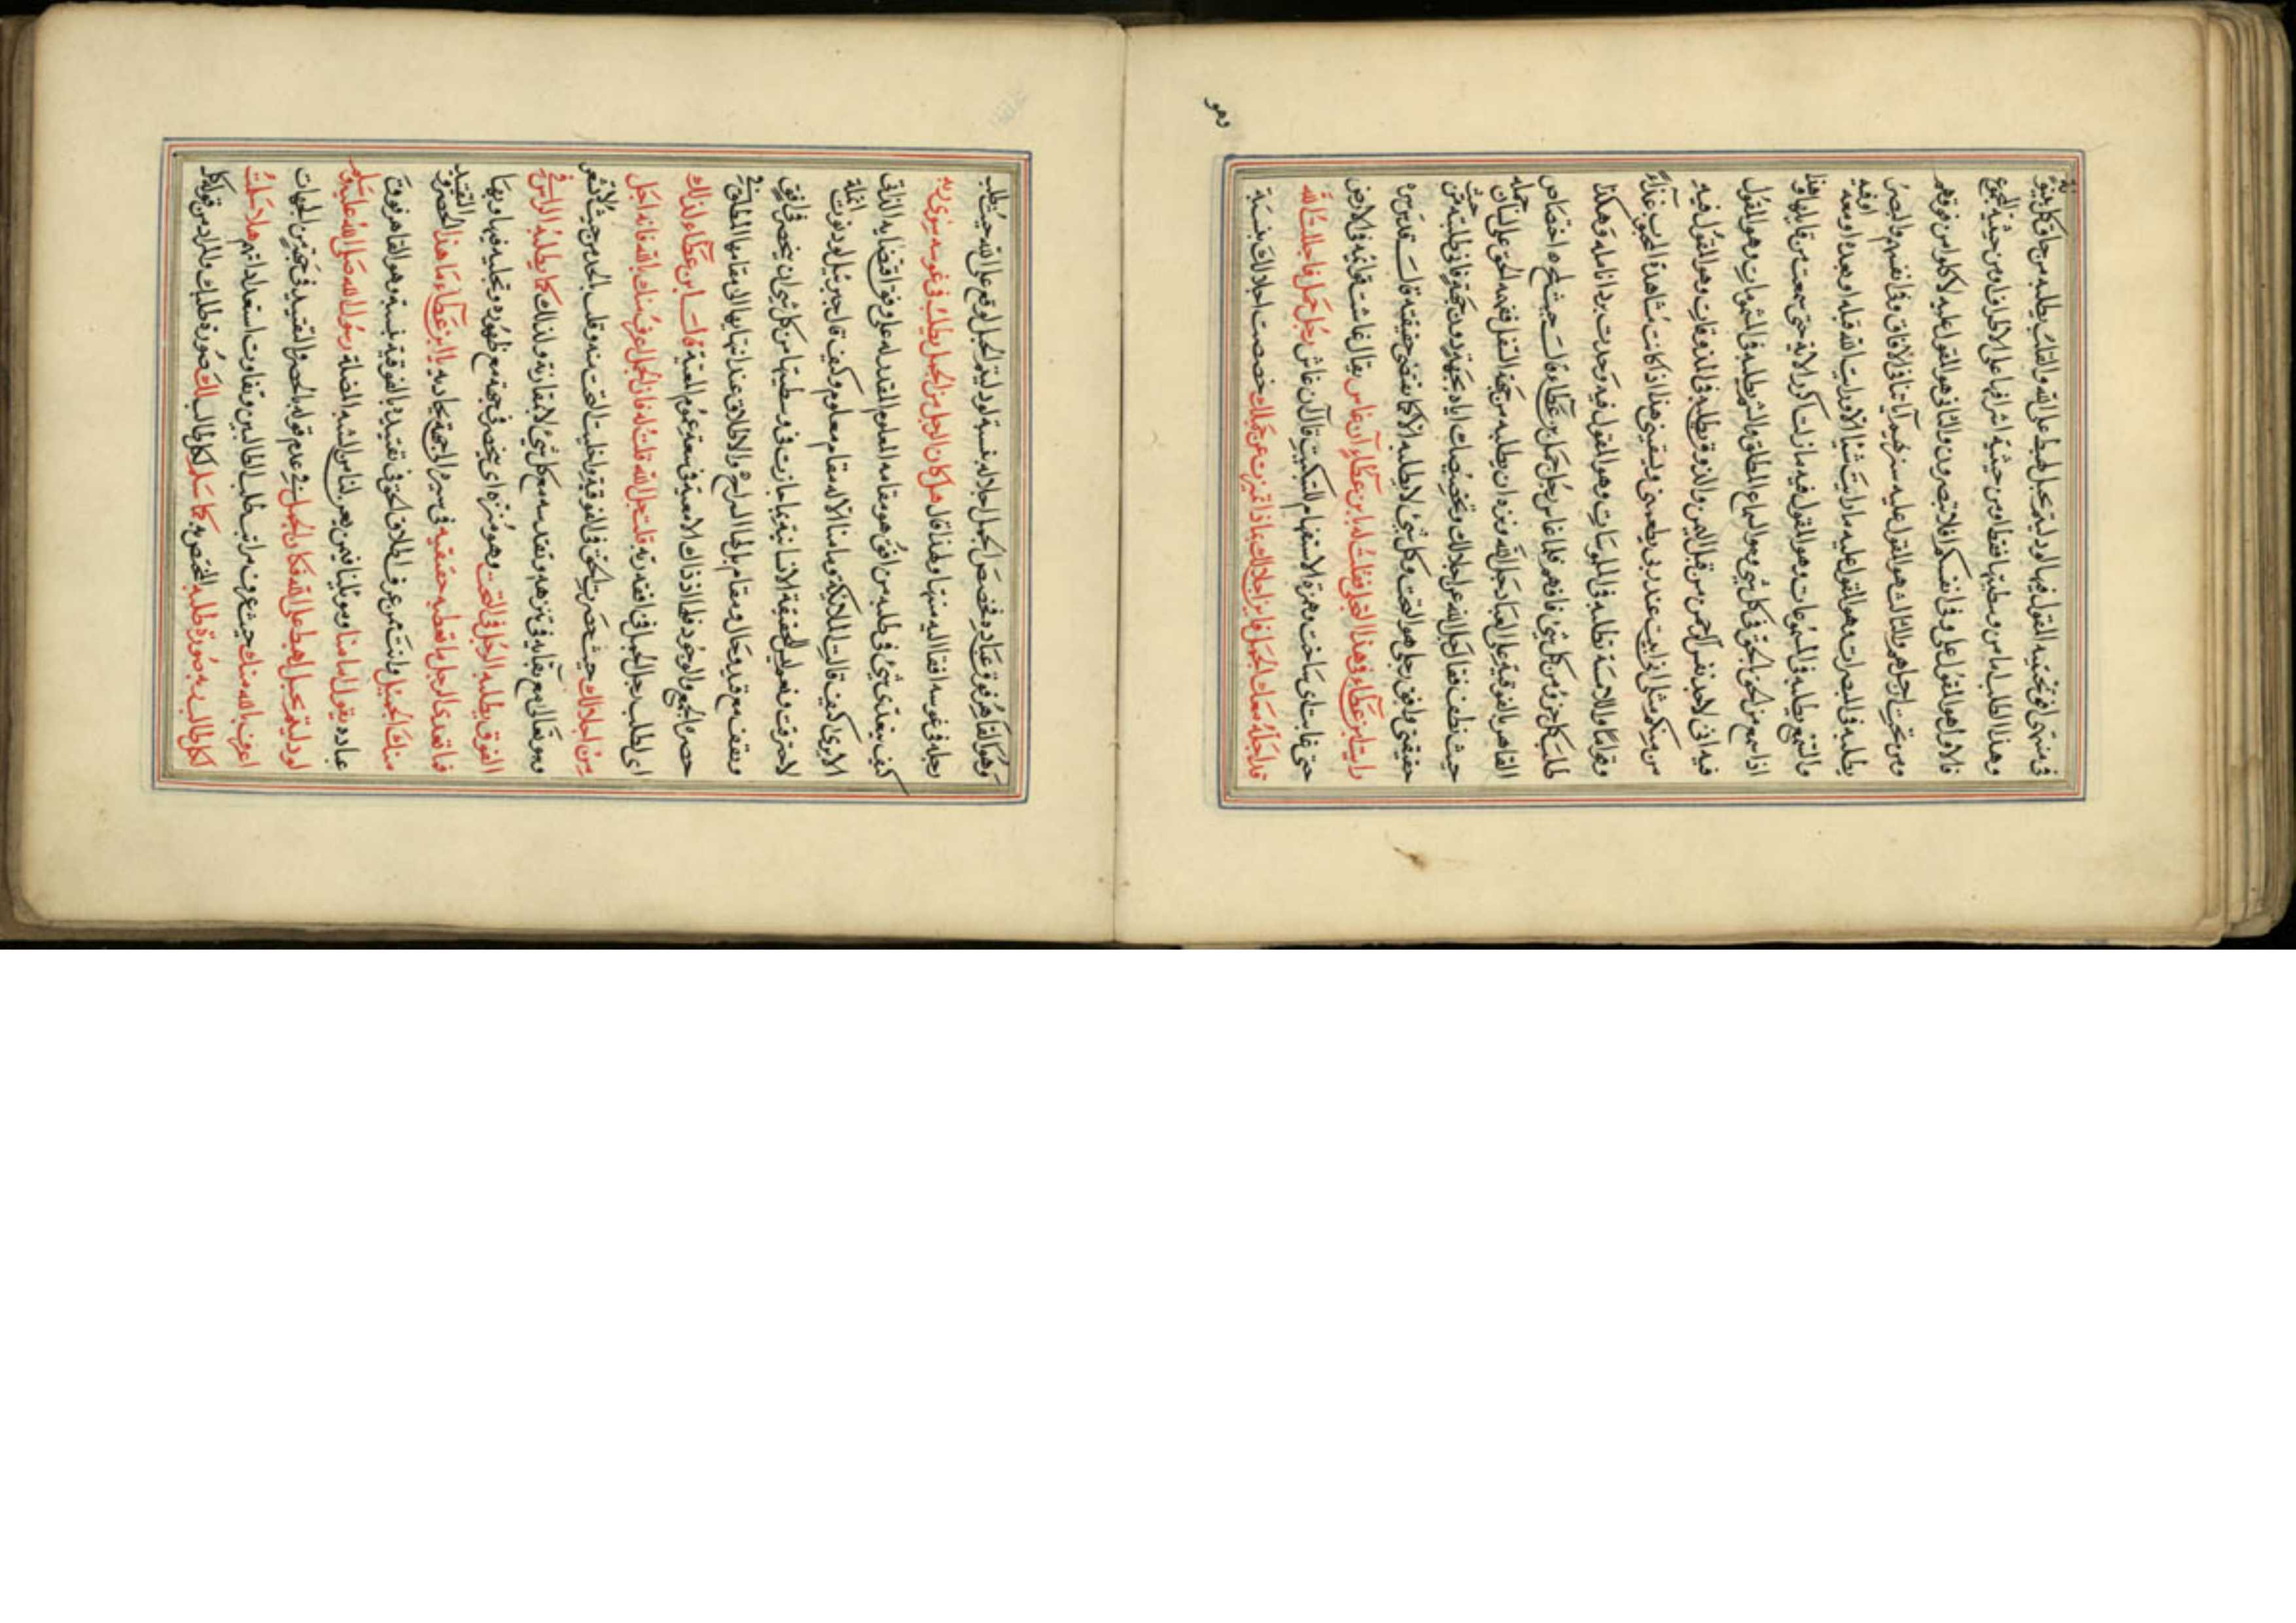 في منتهى افق تحتيته القول فيها ولو دليتم بحبل لهبط على الله والقلب يطلبه من جانب كل جنبه
وهذا الطلب اما من وسطيتها فقط او من حيثية اشرافها على الاطراف او من حيثية الجمع
فالاول هو المقول عليه وفي انفسكم افلا تبصرون والثاني هو المقول عليه لاكلوا من فوقهم
ومن تحت ارجلهم والثالث هو المقول عليه سنريهم آياتنا في الآفاق وفي انفسهم والبصر
يطلبه في المبصرات وهو المقول عليه ما رايت شيئا الا ورايت الله قبله او بعده او معه او فيه
والسمع يطلبه في المسموعات وهو المقول فيه ما زلت اكرر الآية حتى سمعت من قايلها وهذا
اذا سمع من الحق الحق في كل شي وهو السماع المطلق والشم يطلبه في المشمومات وهو المقول
فيه اني لاجد نفس الرحمن من قبل اليمن والذوق يطلبه في المذوقات وهو المقول فيه
من منكم مثلي اني ابيت عند ربي يطعمني ويسقيني هذا اذا كانت مشاهدة الرب غذاء
وقوله واللامسة تطلبه في الملموسات وهو المقول فيه وجدت برد انامله وهكذا
طلب كل جزؤ من كل شي فافهم فلما غاص رجل جمل بن عطاء قال حيث اختصاص
القاهر بالفوقية على العباد جل الله ونزه ان يطلبه من جهة السفل ففهمه الحق على لسان جمله
حيث نطق فقال جل الله عن اجلالك وتخصيصك اياه بجهة دون جهة فاني طلبته من حيث
حقيقتي وافق رجلي هو التحت وكل شي لا يطلبه الا كما يقتضي حقيقته قال قدس سره
رايت ابن عطاء في هذا التجلي فقلت له يا بن عطاء آن غاص يقال غاصت قوايمه في الارض
حتى غابت اي ساخت وهمزة الاستفهام للتبكيت قال آن غاص رجل جمل فاجللت الله
قد اجله معك الجمل فاين اجلالك بماذا تميزت عن جملك خصصت اجلالك بنسبة
وهو
وهو القاهر فوق عباده فخصص الجمل اجلاله بنسبة لو دليتم بحبل لوقع على الله حيث طلب
رجله في غوصه افقا اليه منتهاه ولهذا قال هل كان الرجل من الجمل يطلب في غوصه سوى ربه
كيف يتعدى شي في طلبه من افق هو مقامه المعلوم المقدر له على وفق اقتضايه الذاتي
الا يرى كيف قالت الملائكة وما منا الا له مقام معلوم وكيف قال جبرئيل لو دنوت انملة
لاحترقت ونعم الحقيقة الانسانية بما حازت في وسطيتها من كل شي ان ينحصر في افق
ويقف مع قيد وحال ومقام بل لها السراح والاطلاق عند انتهايها الى مقامها المطلق في
حضرة الجمع والوجود فلها اذ ذاك الامعية في سعة عموم المعية قال ابن عطاء لذلك
اي لطلب رجل الجمل في افقه ربه قلت جل الله قلت له فان الجمل اعرف منك بالله فانه اجل
من اجلالك حيث حصرت الحق في الفوقية واخليت التحت منه وقلت بالحد من حيث لا تشعر
وهو تعالى مع بقايه في تنزهه وتقدسه مع كل شي لا بمقارنة ولذلك كما يطلبه الراس في
الفوق يطلبه الرجل في التحت وهو منزه اي ينحصر في جهة مع ظهوره وتجليه فيها وبها
فما تعدى الرجل ما تعطيه حقيقته في سيره الى جهة يحاذيه يا ابن عطاء ما هذا الحصر والتقييد
منك الجمل وانت ممن عرف اطلاق الحق في تقييده بالفوقية بنسبة وهو القاهر فوق
عباده يقول امامنا وموئلنا فيمن يعين لنا من الشبه المضلة رسول الله صلى الله عليه وسلم
لو دليتم بحبل لهبط على الله فكان الجمل في عدم قوله بالحصر والتقييد في جهة من الجهات
اعرف بالله منك حيث عرف مراتب طلب الطالبين وتفاوت استعداداتهم هلا سلمت
لكل طالب ربه صورة طلبه المختص به كما سلم لك كل طالب لك صورة طلبك والمراد من قوله كل